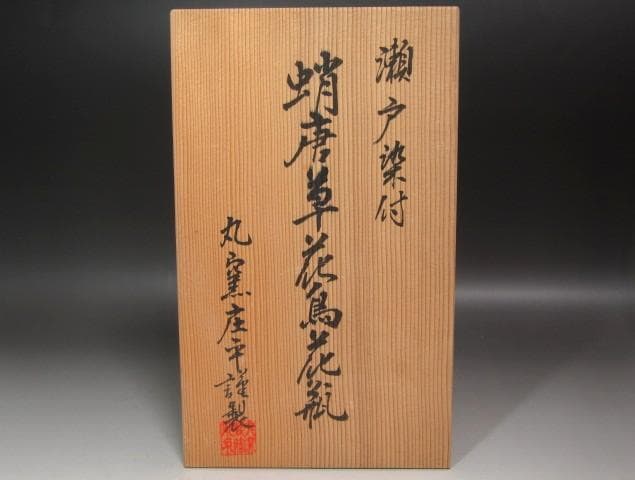 瀬戸染付
蛸唐草花鳥花瓶
丸窯庄平謹製